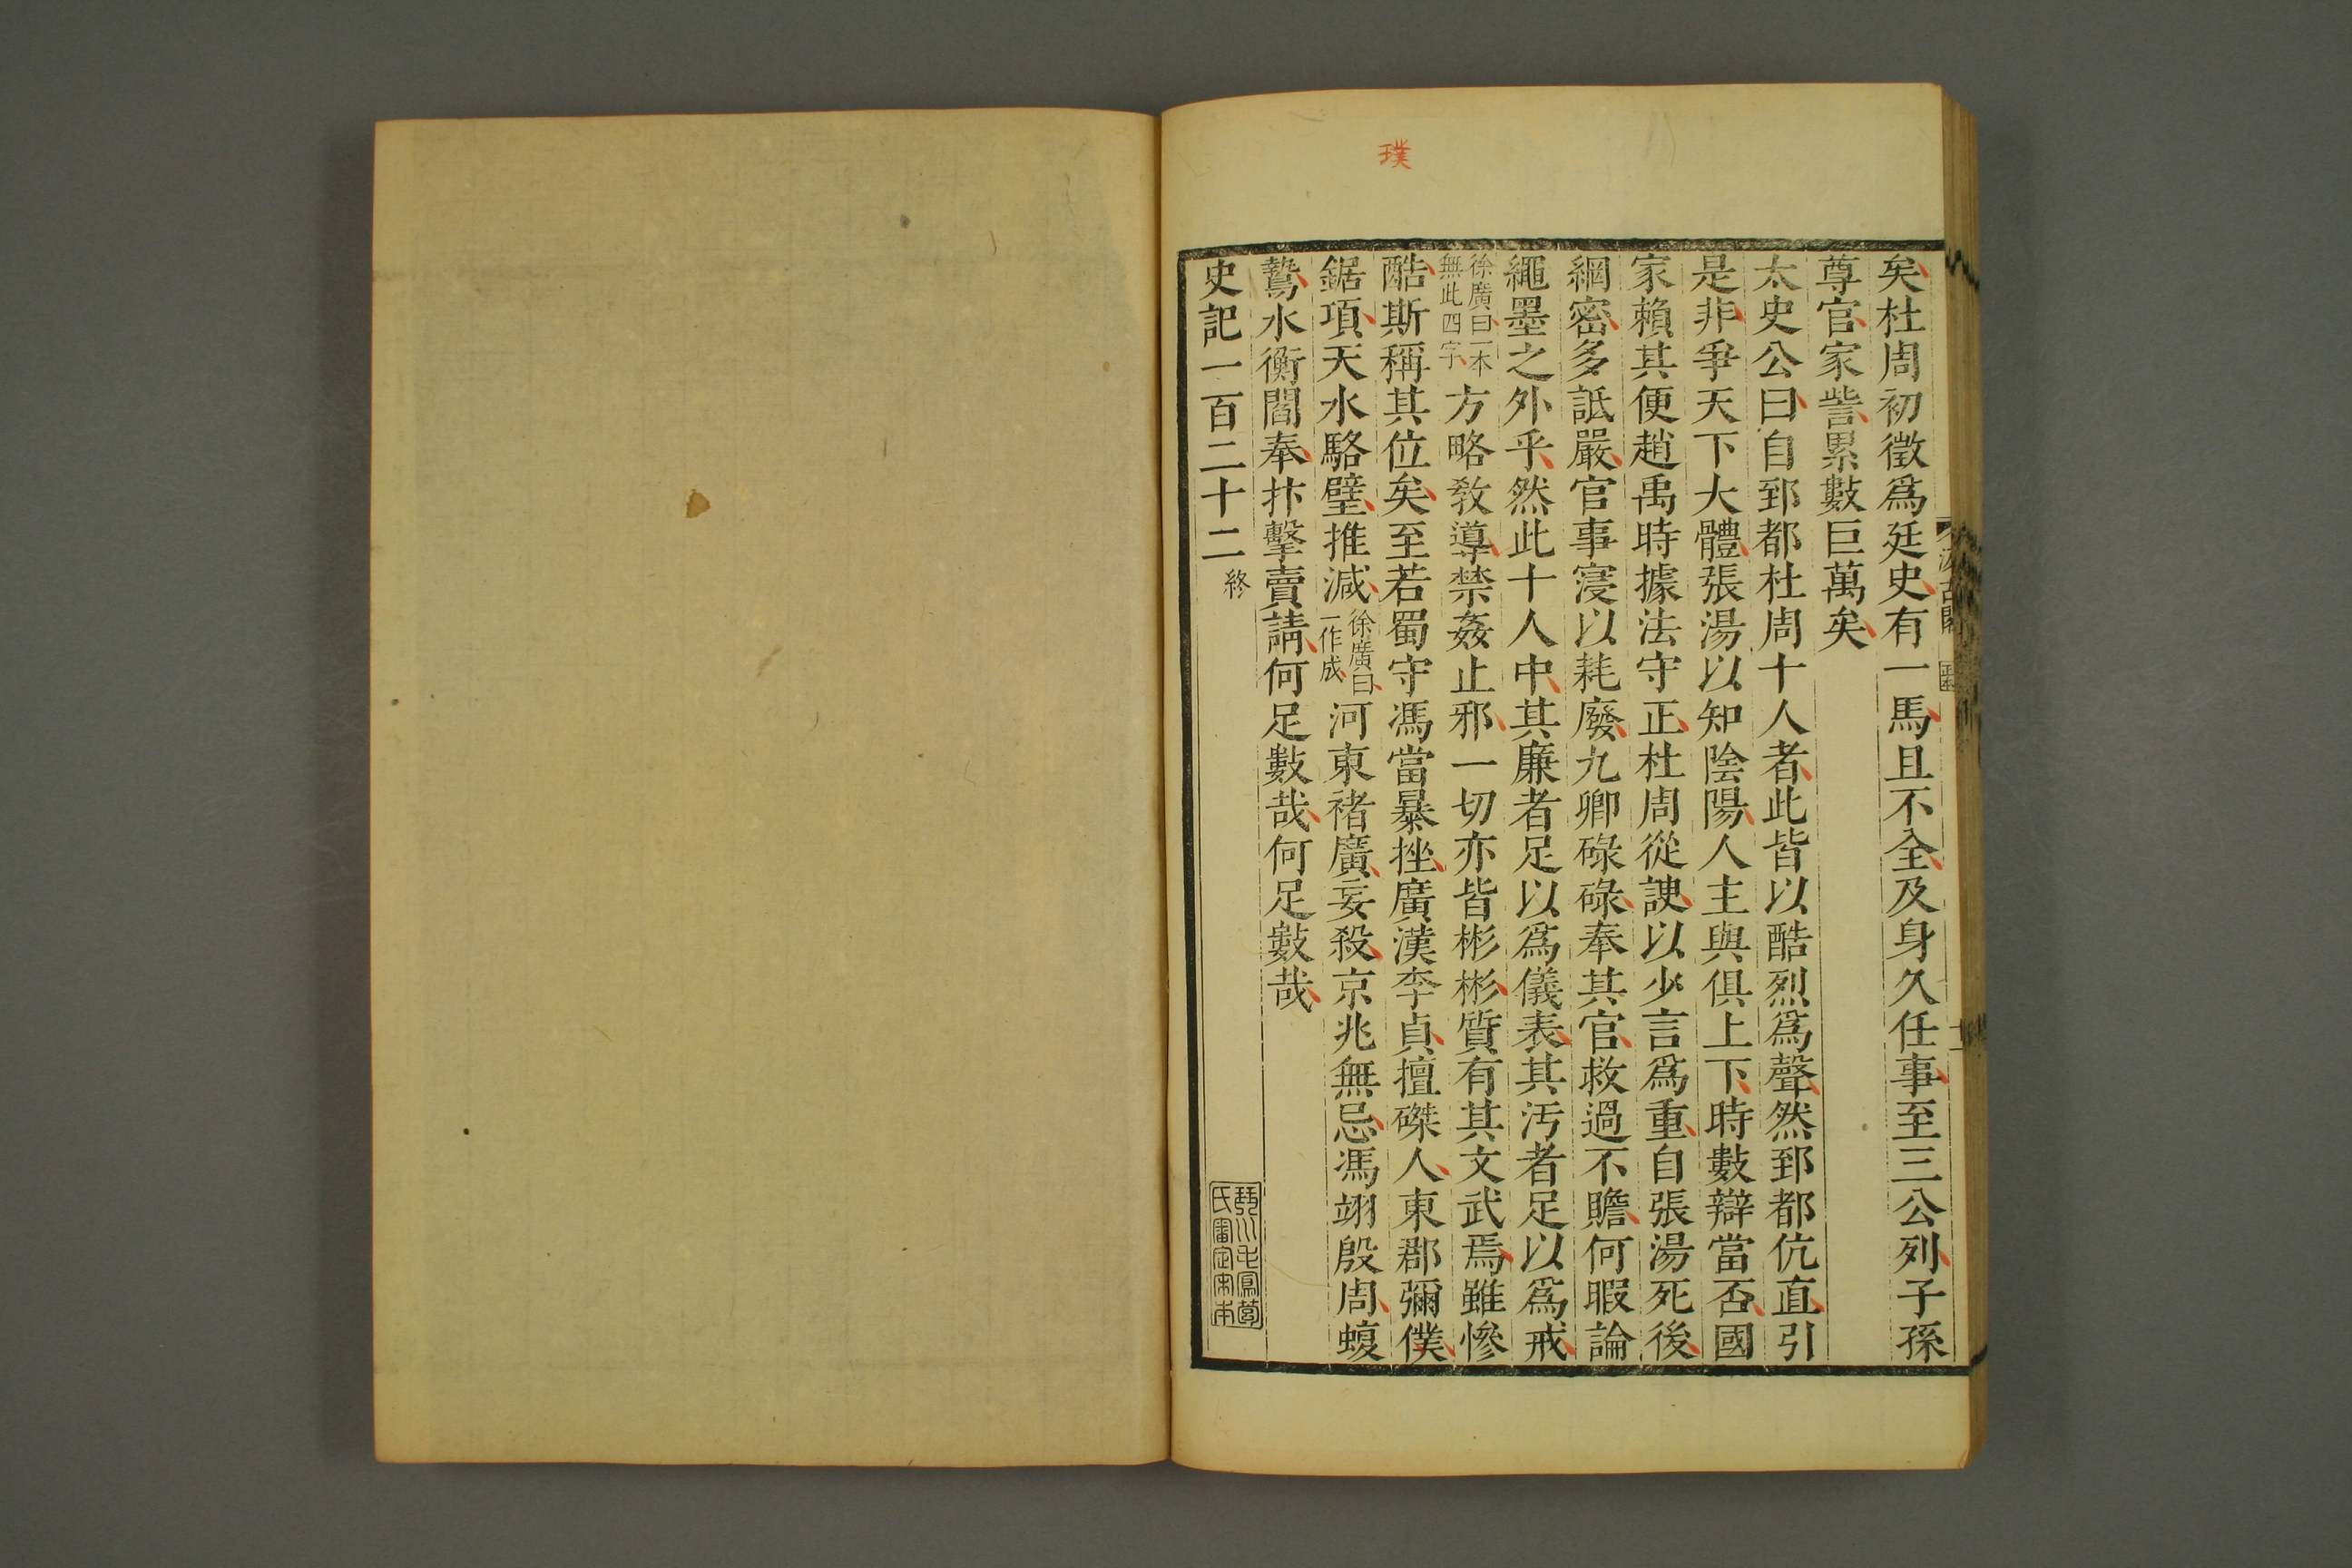 璞
矣杜周初徵爲廷史有一馬且不全及身久任事至三公列子孫
尊官家訾累數巨萬矣
太史公曰自郅都杜周十人者此皆以酷烈爲聲然郅都伉直引
是非爭天下大體張湯以知陰陽人主與俱上下時數辯當否國
家賴其便趙禹時據法守正杜周從諛以少言爲重自張湯死後
網密多詆嚴官事寖以耗廢九卿碌碌奉其官救過不贍何暇論
繩墨之外乎然此十人中其廉者足以爲儀表其汚者足以爲戒
徐廣曰一本
無此四字
方略敎導禁姦止邪一切亦皆彬彬質有其文武焉雖慘
酷斯稱其位矣至若蜀守馮當暴挫廣漢李貞擅磔人東郡彌僕
鋸項天水駱璧推減
徐廣曰
一作成
河東褚廣妄殺京兆無忌馮翊殷周蝮
鷙水衡閻奉扑擊賣請何足數哉何足數哉
史記一百二十二終
琴川毛鳳苞
氏審定宋本
汲古閣